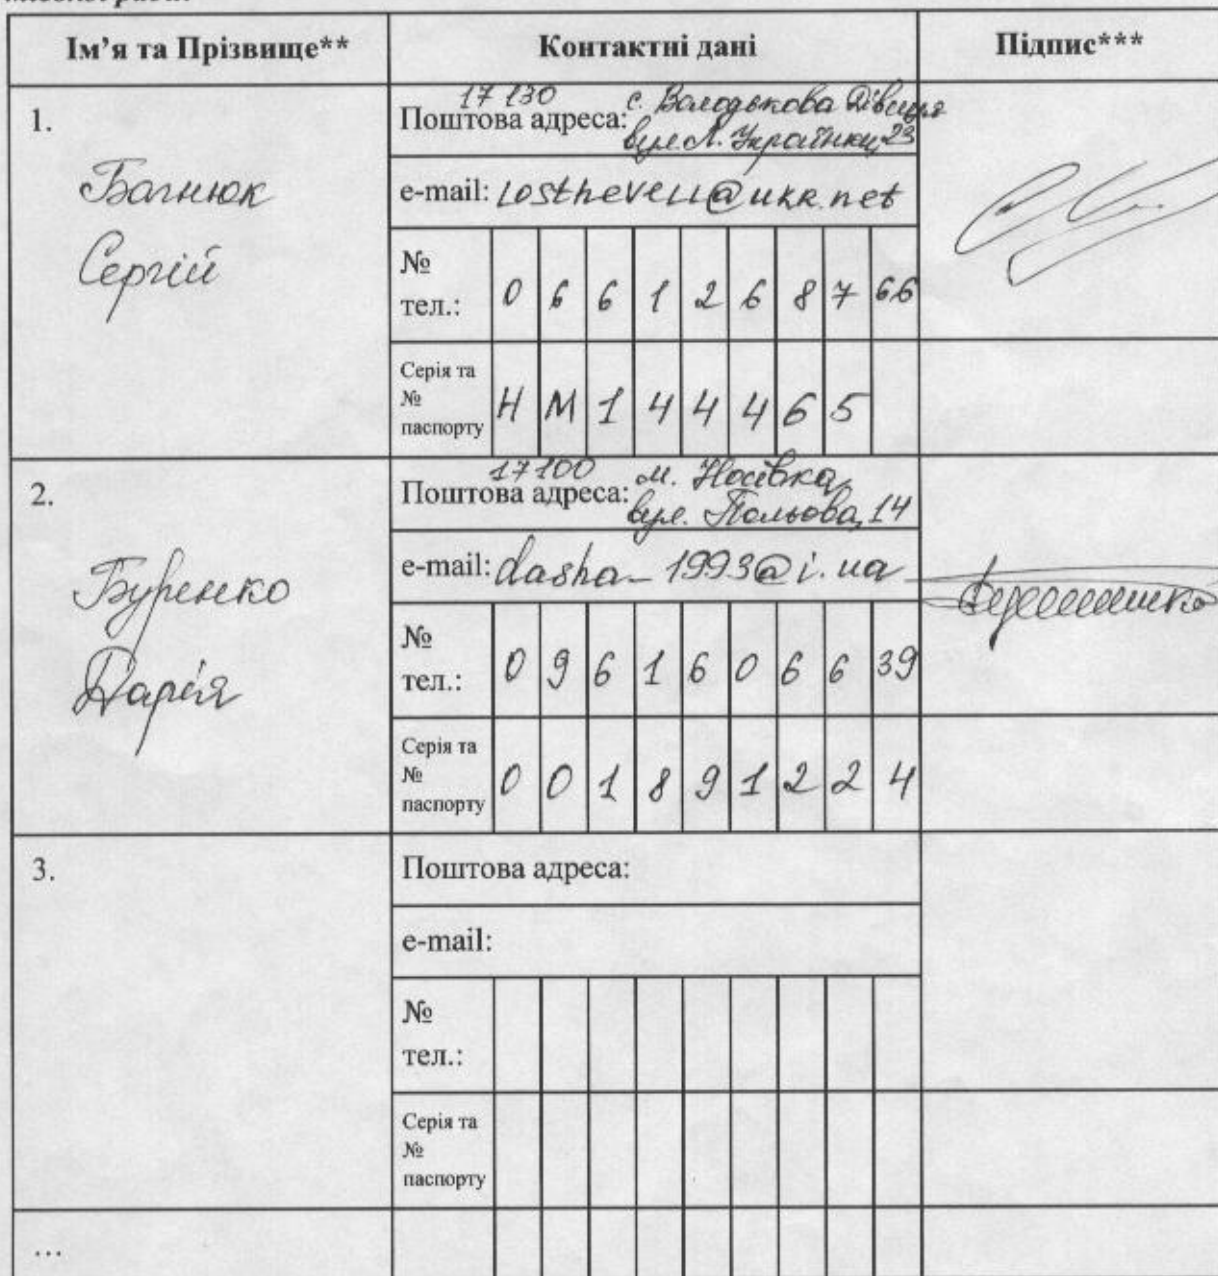 Ім’я та Прізвище**
Контактні дані
Підпис***
1.
Багнюк
Сергій
17130 с. Володькова Дівиця
Поштова адреса: вул. Л. Українки, 23
e-mail: losthevell@ukr.net
№ тел.: 0 6 6 1 2 6 8 7 66
Серія та № паспорту Н М 1 4 4 4 6 5
2.
Буренко
Дарія
17100 м. Носівка,
Поштова адреса: вул. Польова, 14
e-mail: dasha_1993@i.ua
№ тел.: 0 9 6 1 6 0 6 6 39
Серія та № паспорту 0 0 1 8 9 1 2 2 4
3.
Поштова адреса:
e-mail:
№ тел.:
Серія та № паспорту
...